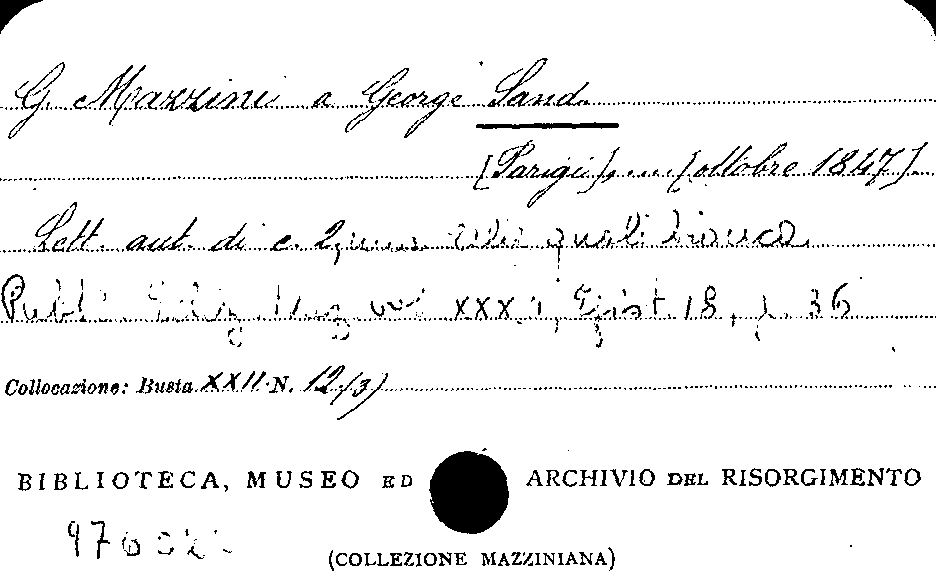 G. Mazzini a George Sand.
[Parigi], .... [ottobre 1847].
Lett. aut. di c. 2, delle quali bianca.
Pubbl. Ediz. Naz. vol. XXX, Epist. 18, p. 36
Collocazione: Busta XXII N. 12/3)
BIBLIOTECA, MUSEO ED ARCHIVIO DEL RISORGIMENTO
976
(COLLEZIONE MAZZINIANA)